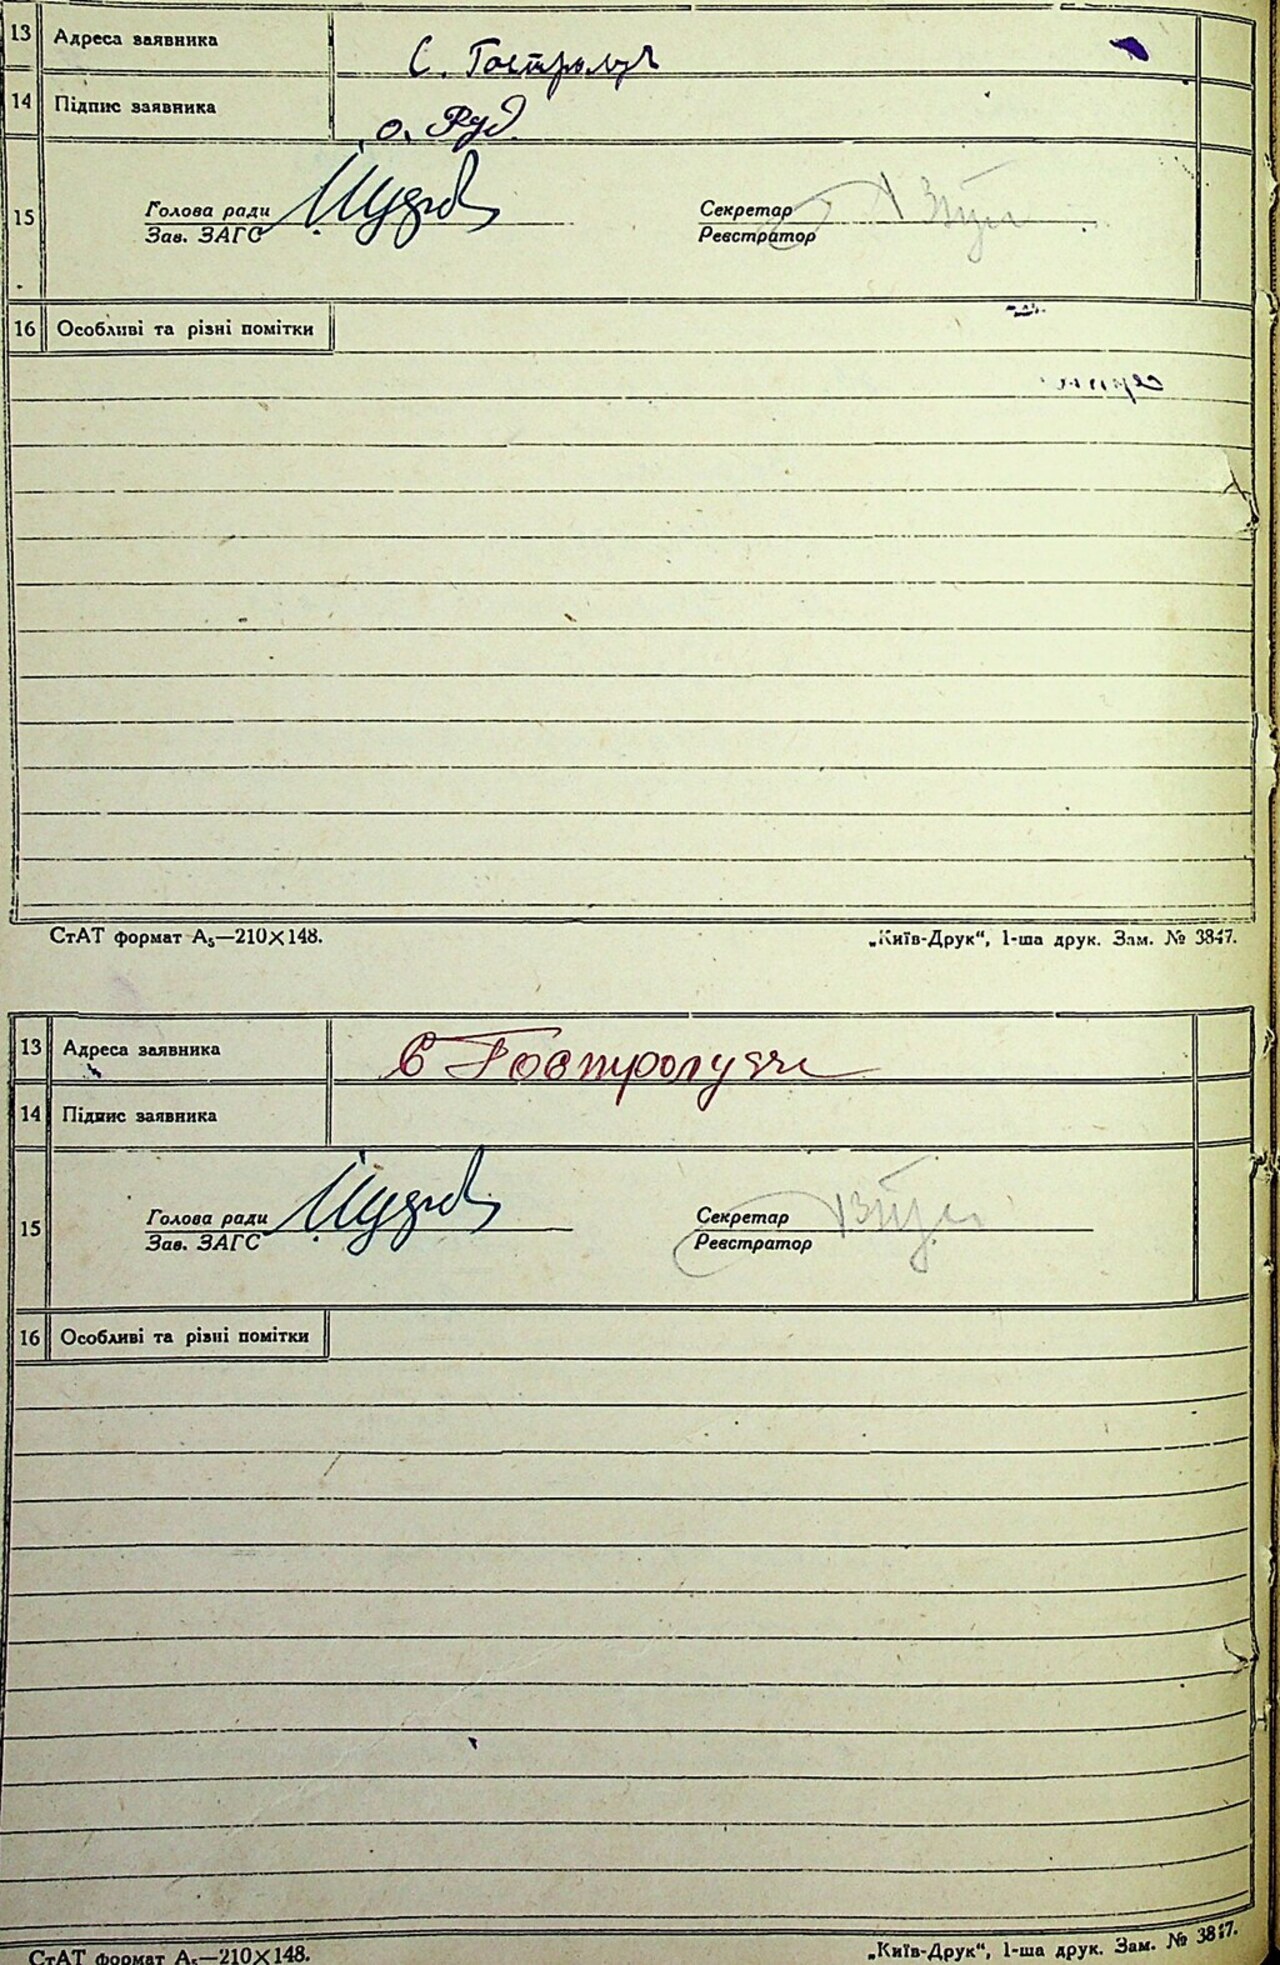 13 Адреса заявника С. Гостролуч
14 Підпис заявника О. Руд
15 Голова ради Секретар
Зав. ЗАГС Реєстратор
16 Особливі та різні помітки
СтАТ формат А₅—210×148. „Київ-Друк“, 1-ша друк. Зам. № 3847.
13 Адреса заявника с Гостролуччи
14 Підпис заявника
15 Голова ради Секретар
Зав. ЗАГС Реєстратор
16 Особливі та різні помітки
СтАТ формат А₅—210×148. „Київ-Друк“, 1-ша друк. Зам. № 3847.